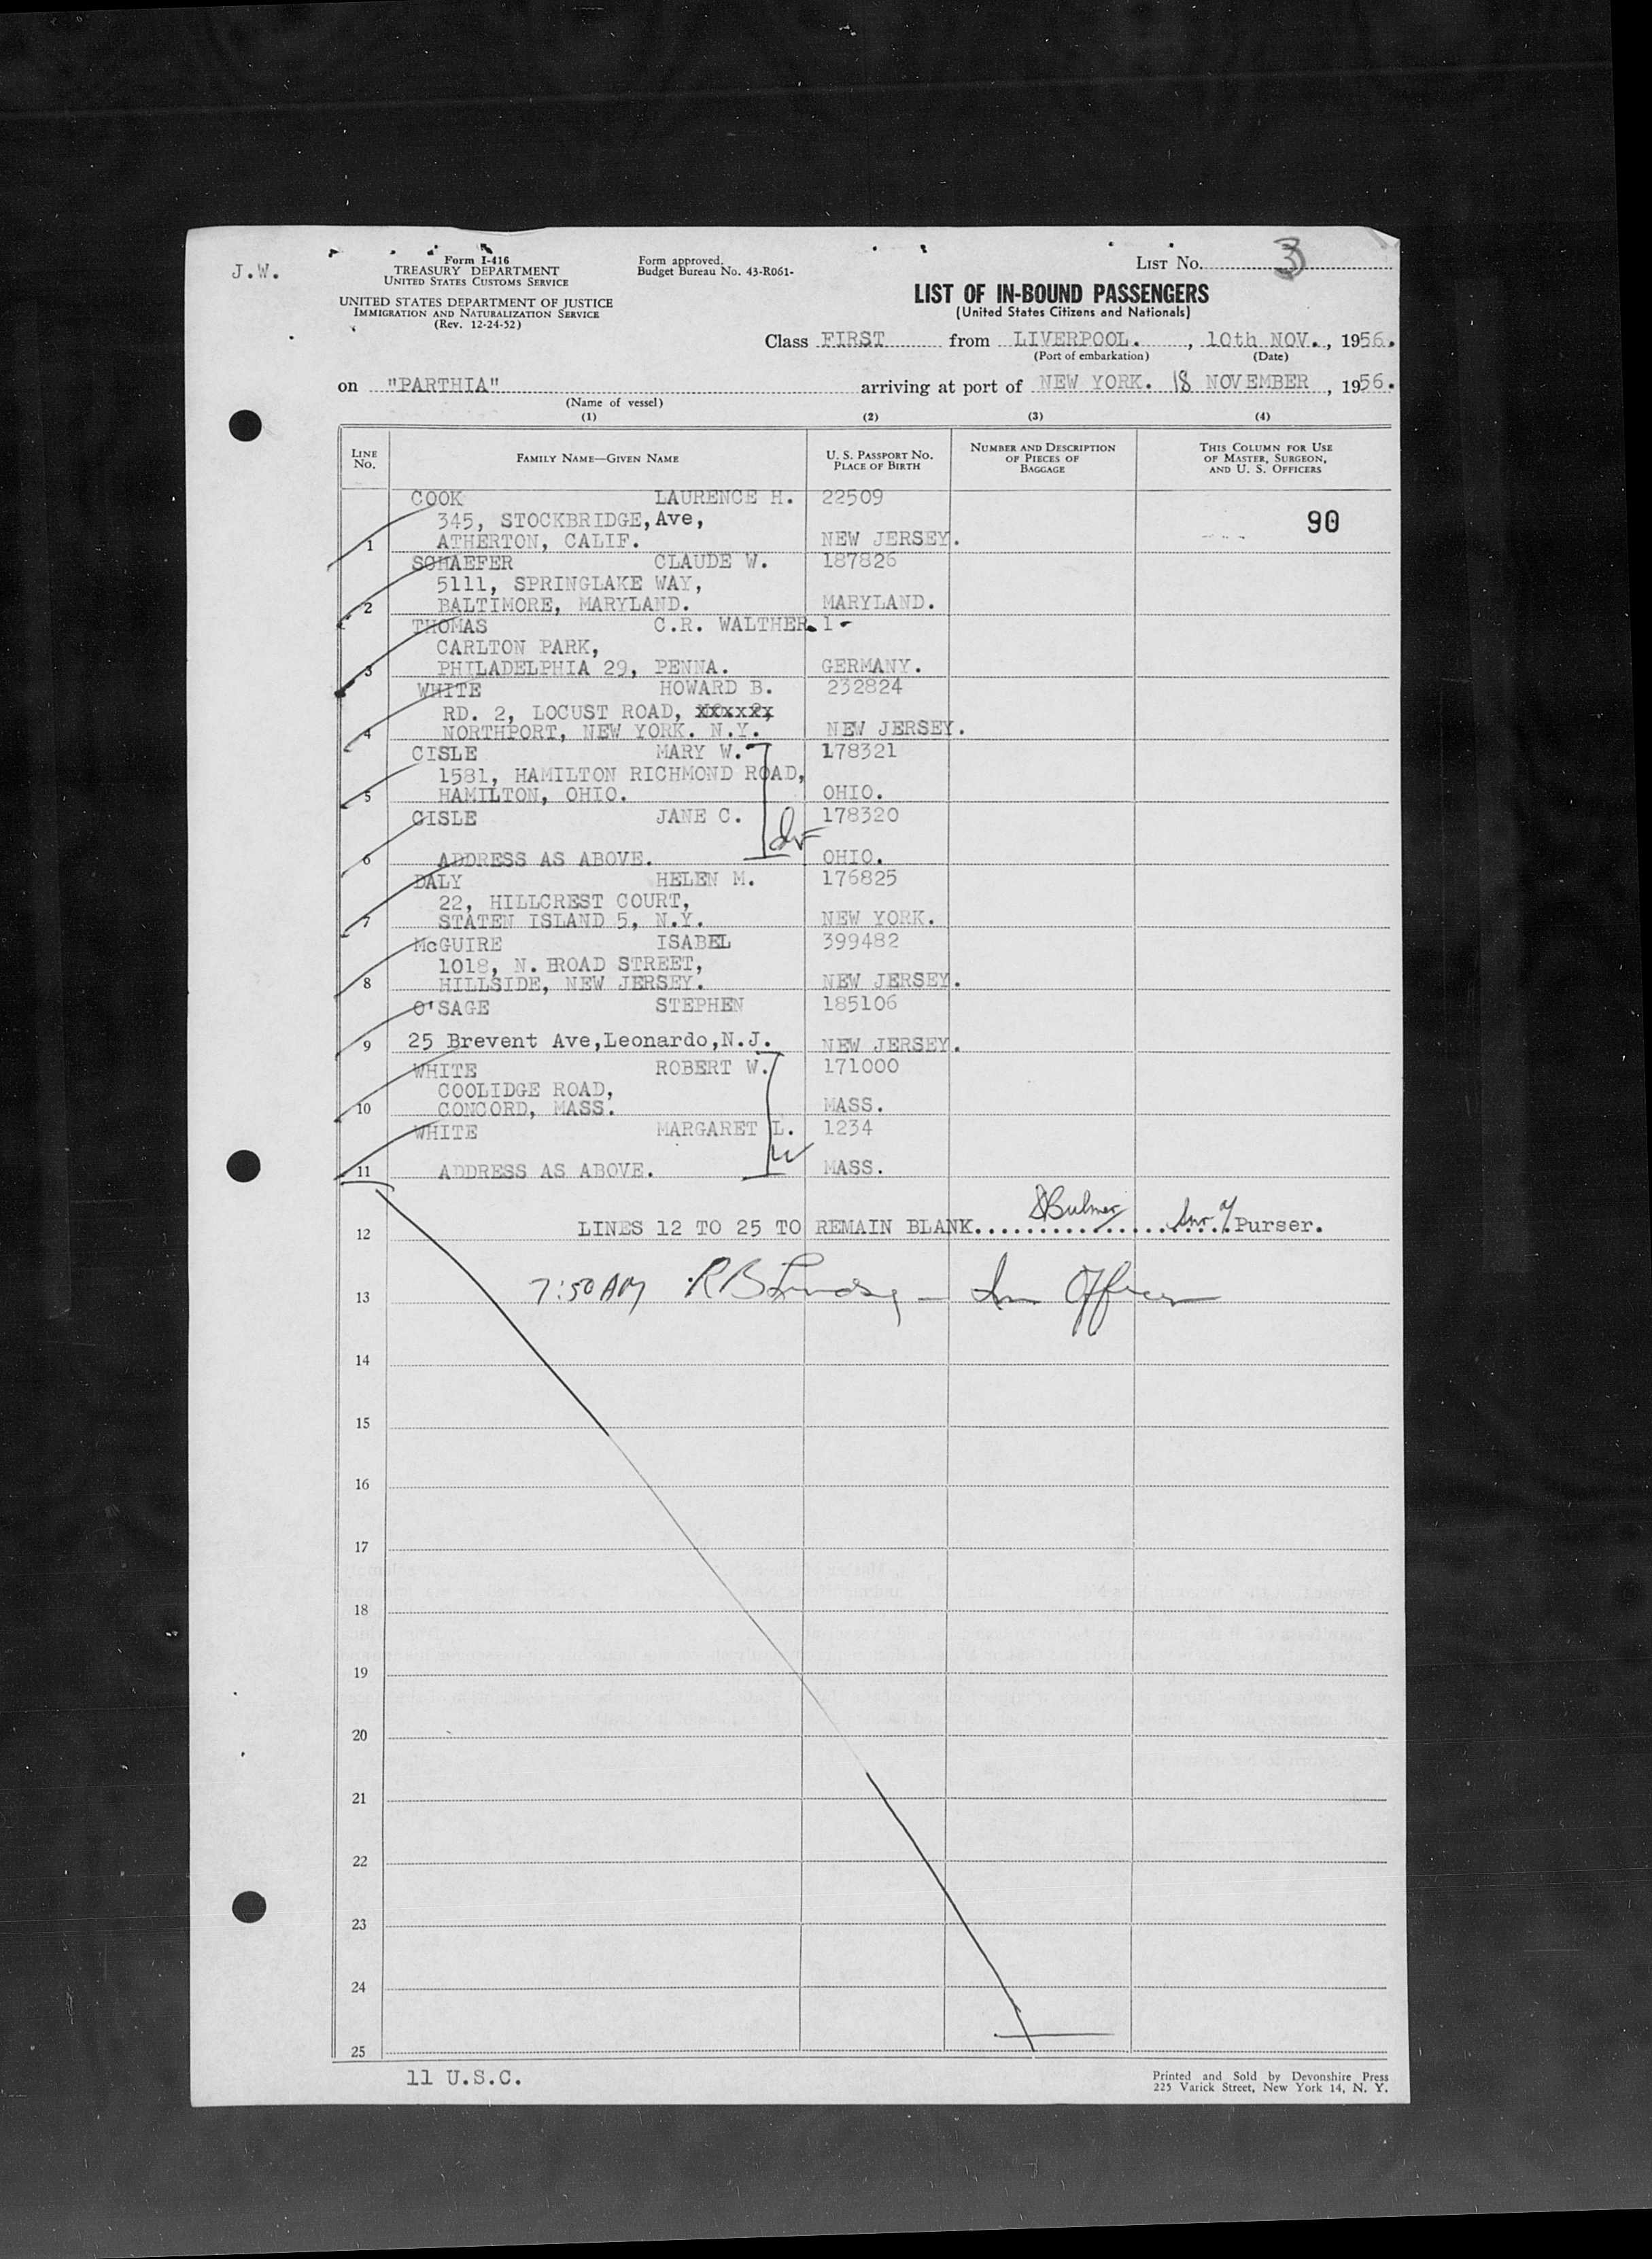 J.W.
Form I-416
TREASURY DEPARTMENT
UNITED STATES CUSTOMS SERVICE
UNITED STATES DEPARTMENT OF JUSTICE
IMMIGRATION AND NATURALIZATION SERVICE
(Rev. 12-24-52)
Form approved.
Budget Bureau No. 43-R061-
LIST NO. 3
LIST OF IN-BOUND PASSENGERS
(United States Citizens and Nationals)
Class FIRST from LIVERPOOL. , 10th NOV., 1956.
(Port of embarkation) (Date)
on "PARTHIA" arriving at port of NEW YORK. 18 NOVEMBER, 1956.
(Name of vessel)
(1) (2) (3) (4)
LINE NO. FAMILY NAME—GIVEN NAME U. S. PASSPORT NO. PLACE OF BIRTH NUMBER AND DESCRIPTION OF PIECES OF BAGGAGE THIS COLUMN FOR USE OF MASTER, SURGEON, AND U. S. OFFICERS
COOK LAURENCE H. 22509
345, STOCKBRIDGE, Ave, 90
1 ATHERTON, CALIF. NEW JERSEY.
SCHAEFER CLAUDE W. 187826
5111, SPRINGLAKE WAY,
2 BALTIMORE, MARYLAND. MARYLAND.
THOMAS C.R. WALTHER. 1-
CARLTON PARK,
3 PHILADELPHIA 29, PENNA. GERMANY.
WHITE HOWARD B. 232824
RD. 2, LOCUST ROAD,
4 NORTHPORT, NEW YORK. N.Y. NEW JERSEY.
CISLE MARY W. 178321
1581, HAMILTON RICHMOND ROAD,
5 HAMILTON, OHIO. OHIO.
CISLE JANE C. 178320
6 ADDRESS AS ABOVE. OHIO.
DALY HELEN M. 176825
22, HILLCREST COURT,
7 STATEN ISLAND 5, N.Y. NEW YORK.
McGUIRE ISABEL 399482
1018, N. BROAD STREET,
8 HILLSIDE, NEW JERSEY. NEW JERSEY.
O'SAGE STEPHEN 185106
9 25 Brevent Ave,Leonardo,N.J. NEW JERSEY.
WHITE ROBERT W. 171000
COOLIDGE ROAD,
10 CONCORD, MASS. MASS.
WHITE MARGARET L. 1234
11 ADDRESS AS ABOVE. MASS.
12 LINES 12 TO 25 TO REMAIN BLANK. Bulmer Purser.
13 7:50 AM Officer
14
15
16
17
18
19
20
21
22
23
24
25
11 U.S.C.
Printed and Sold by Devonshire Press
225 Varick Street, New York 14, N. Y.